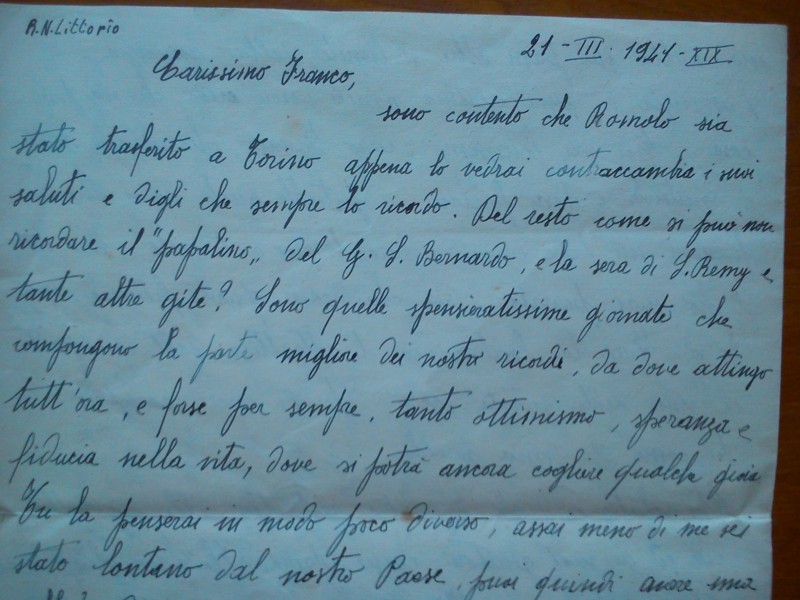 R.N. Littorio
21 - III. 1941 - XIX
Carissimo Franco,
sono contento che Romolo sia
stato trasferito a Torino appena lo vedrai contraccambia i suoi
saluti e digli che sempre lo ricordo. Del resto come si può non
ricordare il "papalino„ del G. S. Bernardo, e la sera di S. Remy e
tante altre gite? Sono quelle spensieratissime giornate che
compongono la parte migliore dei nostri ricordi, da dove attingo
tutt'ora, e forse per sempre, tanto ottimismo, speranza e
fiducia nella vita, dove si potrà ancora cogliere qualche gioia
Tu la penserai in modo poco diverso, assai meno di me sei
stato lontano dal nostro Paese, puoi quindi avere una